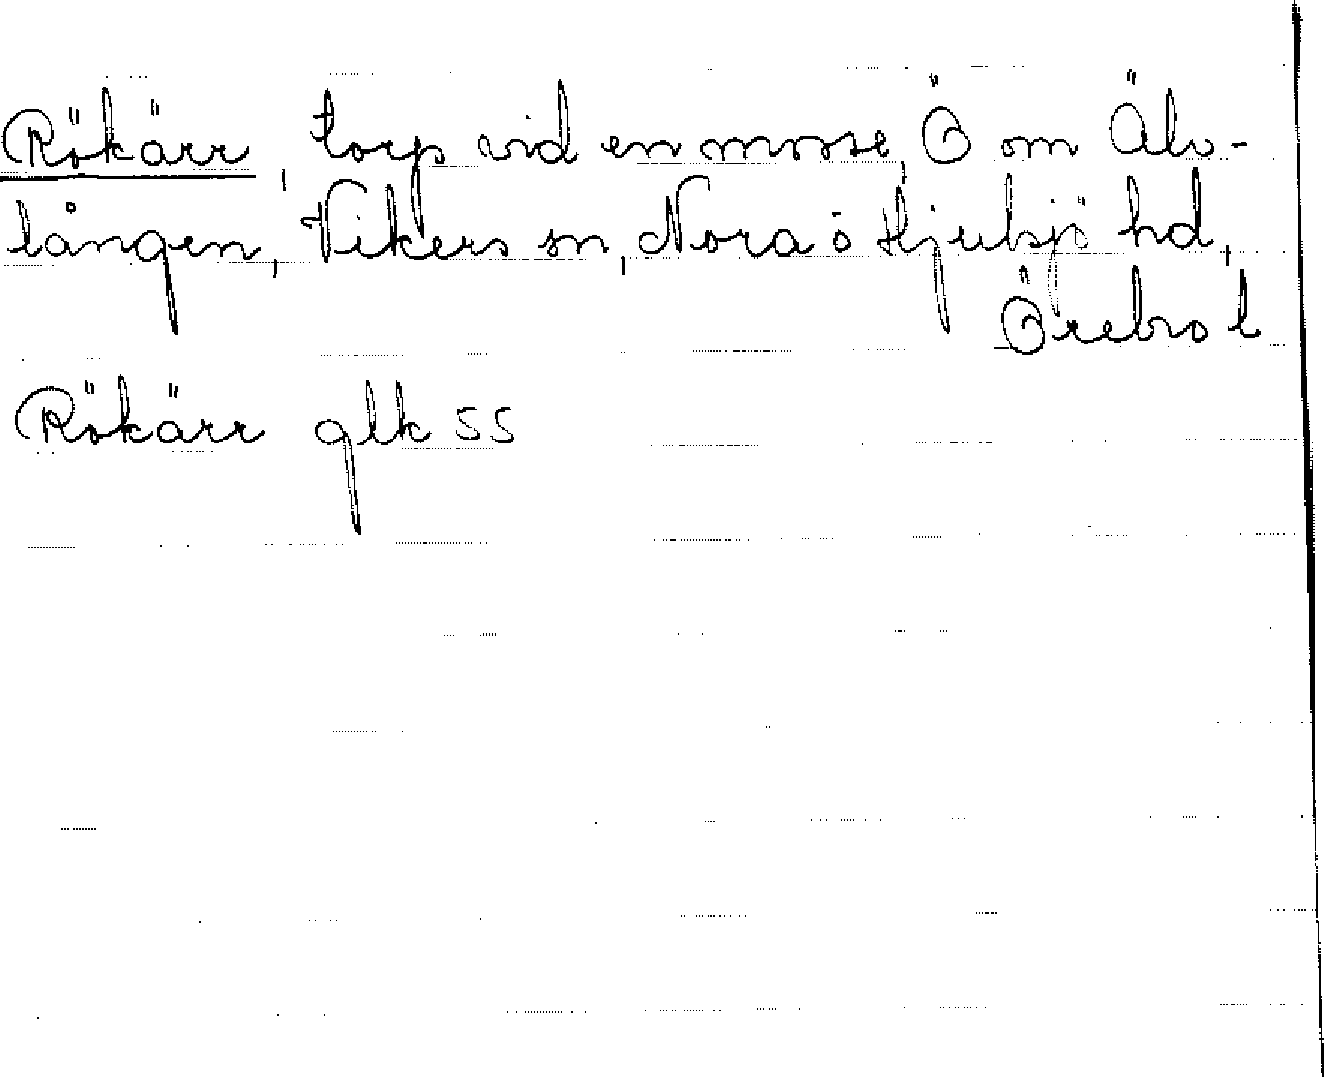 Rökärr, torp vid en mosse, Ö om Älv-
lången, Vikers sn, Nora ö Hjulsjö hd,
Örebro l
Rökärr glk 55